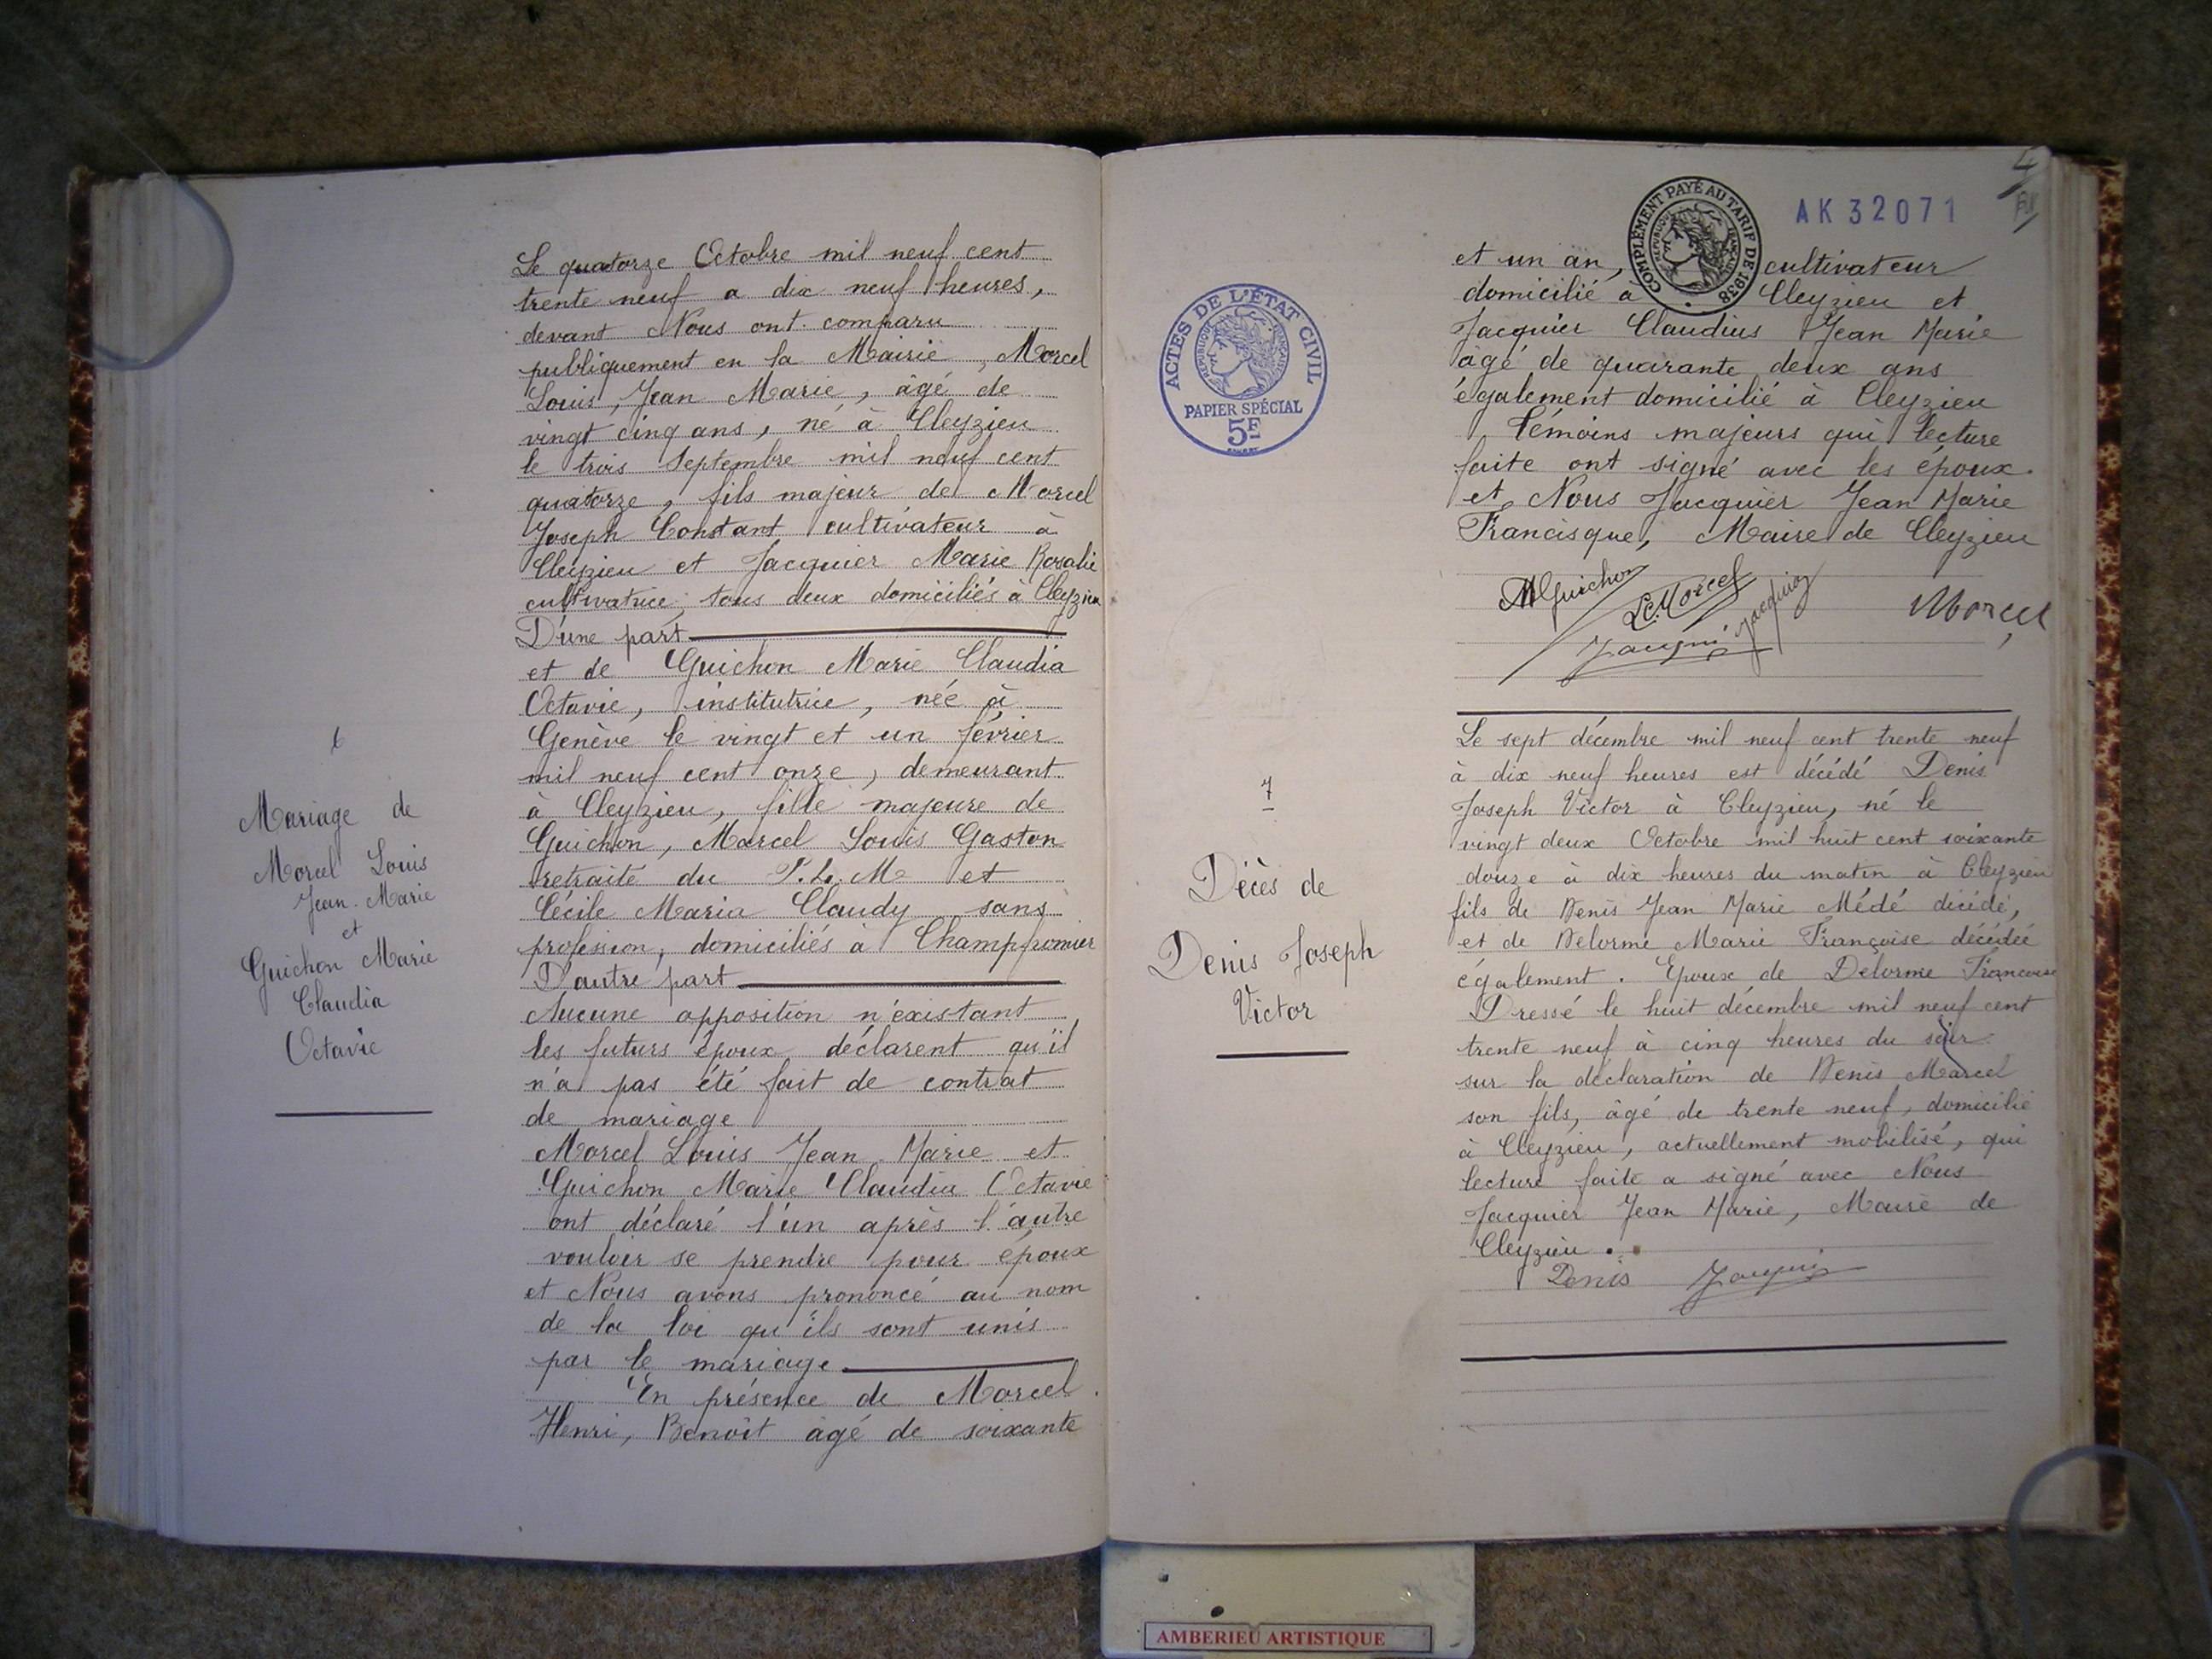 6
Mariage de
Morcel Louis
Jean-Marie
et
Guichon Marie
Claudia
Octavie
Le quatorze Octobre mil neuf cent
trente neuf a dix neuf heures,
devant Nous ont comparu
publiquement en la Mairie, Morcel
Louis, Jean Marie, âgé de
vingt cinq ans, né à Cleyzieu
le trois Septembre mil neuf cent
quatorze, fils majeur de Morcel
Joseph Constant cultivateur à
Cleyzieu et Jacquier Marie Rosalie
cultivatrice, tous deux domiciliés à Cleyzieu
D'une part
et de Guichon Marie Claudia
Octavie, institutrice, née à
Genève le vingt et un février
mil neuf cent onze, demeurant
à Cleyzieu, fille majeure de
Guichon, Marcel Louis Gaston
retraité du P.L.M et
Cécile Maria Claudy sans
profession, domiciliés à Champfromier
D'autre part
Aucune opposition n'existant
les futurs époux déclarent qu'il
n'a pas été fait de contrat
de mariage
Morcel Louis Jean Marie et
Guichon Marie Claudia Octavie
ont déclaré l'un après l'autre
vouloir se prendre pour époux
et Nous avons prononcé au nom
de la loi qu'ils sont unis
par le mariage
En présence de Morcel
Henri, Benoît âgé de soixante
4
AK 32071
COMPLÉMENT PAYÉ AU TARIF DE 1938
RÉPUBLIQUE FRANÇAISE
et un an, cultivateur
domicilié à Cleyzieu et
Jacquier Claudius Jean Marie
âgé de quarante deux ans
également domicilié à Cleyzieu
Témoins majeurs qui lecture
faite ont signé avec les époux
et Nous Jacquier Jean Marie
Francisque, Maire de Cleyzieu
MGuichon L.Morcel Jacquier Morcel
Jacquier
ACTES DE L'ÉTAT CIVIL
RÉPUBLIQUE FRANÇAISE
PAPIER SPÉCIAL
5F
7
Décès de
Denis Joseph
Victor
Le sept décembre mil neuf cent trente neuf
à dix neuf heures est décédé Denis
Joseph Victor à Cleyzieu, né le
vingt deux Octobre mil huit cent soixante
douze à dix heures du matin à Cleyzieu
fils de Denis Jean Marie Médé décédé,
et de Delorme Marie Françoise décédée
également. Epoux de Delorme Françoise
Dressé le huit décembre mil neuf cent
trente neuf à cinq heures du soir
sur la déclaration de Denis Marcel
son fils, âgé de trente neuf, domicilié
à Cleyzieu, actuellement mobilisé, qui
lecture faite a signé avec Nous
Jacquier Jean Marie, Maire de
Cleyzieu.
Denis Jacquier
AMBERIEU ARTISTIQUE